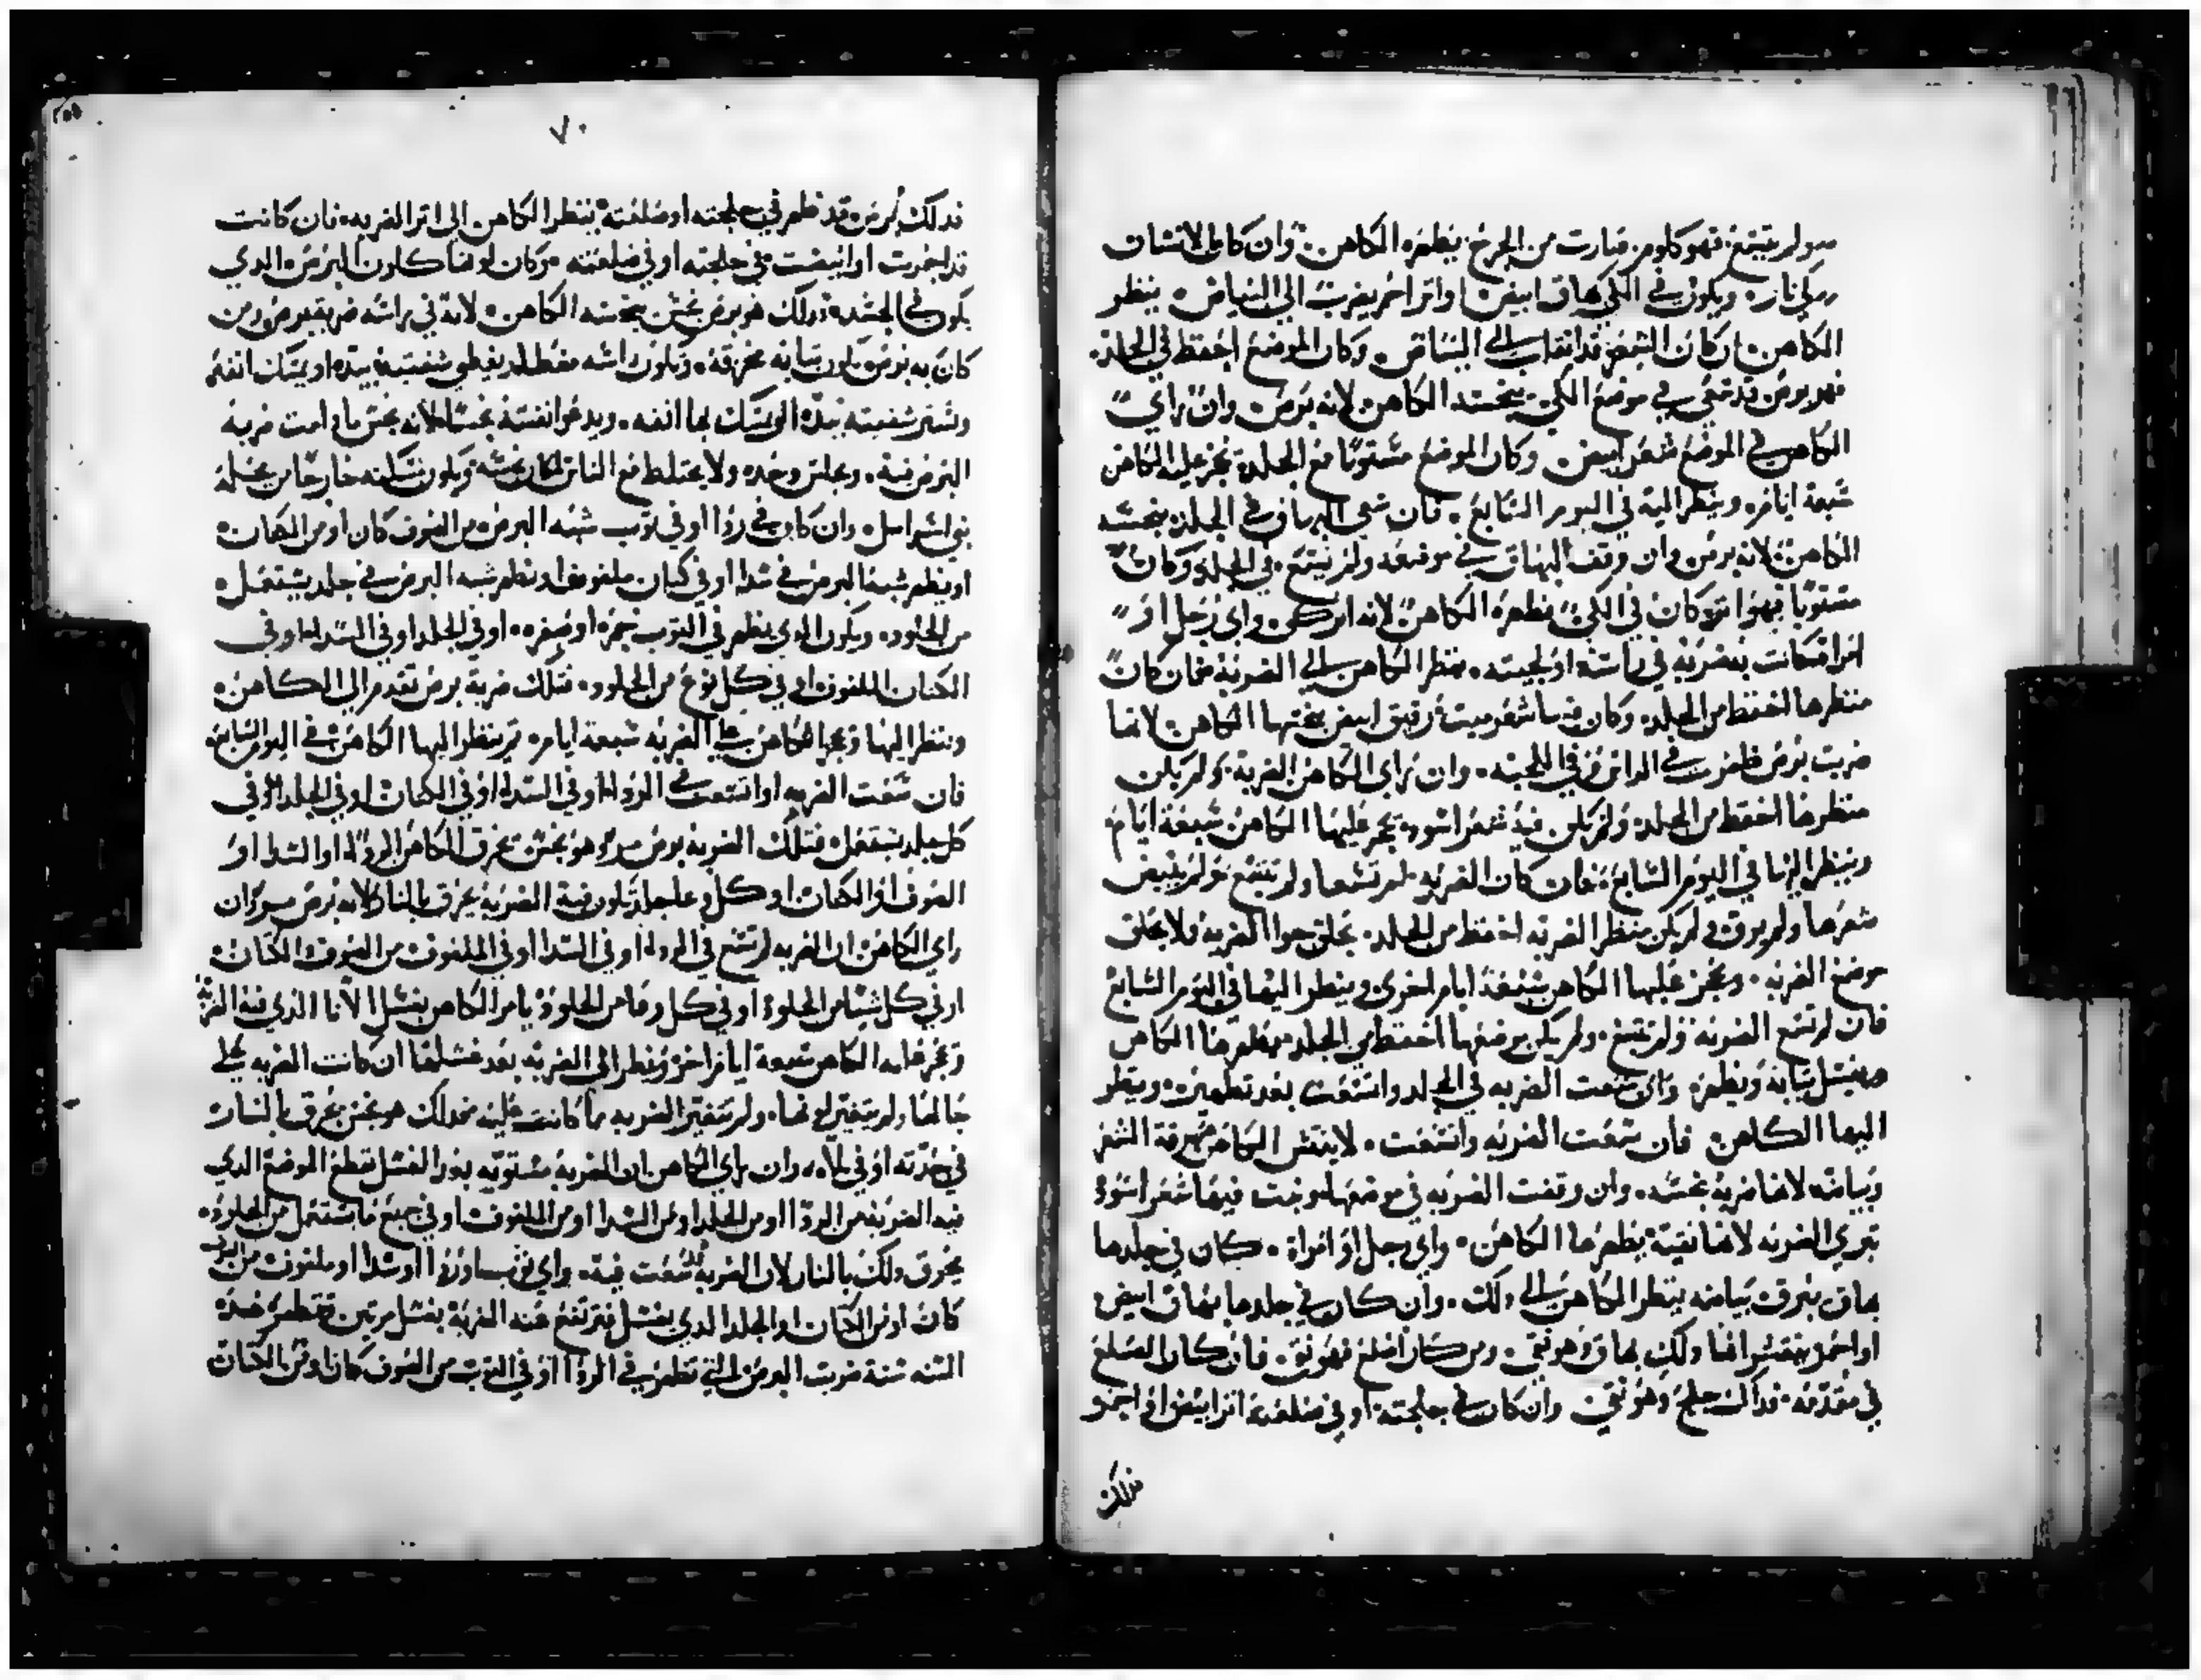 ولم يتسع فهو كلوم صارت من الجرح يطهره الكاهن وان كان بالانسان
كي نار ويكون في الكي بهاق ابيض او اثر احمر يضرب الي البياض ينظر
الكاهن ان كان الشعر قد انقلب الي البياض وكان الموضع اخفظ في الجلد
فهو برص قد مشي في موضع الكي ينجسه الكاهن لانه برص وان راي
الكاهن في الموضع شعر ابيض وكان الموضع مستويا مع الجلد يحجز عليه الكاهن
سبعة ايام وينظر اليه في اليوم السابع فان سعي البهاق في الجلد ينجسه
الكاهن لانه برص وان وقف البهاق في موضعه ولم يتسع في الجلد وكان
مستويا فهو اثر كان في الكي يطهره الكاهن لانه اثر كي واي رجل او
امراة كانت به ضربة في راسه او لحيته ينظر الكاهن الي الضربة فان كان
منظرها اخفظ من الجلد وكان فيها شعر ميت رقيق ابيض ينجسها الكاهن لانها
ضربت برص ظهرت في الراس او في اللحيه وان راي الكاهن الضربة ولم يكن
منظرها اخفظ من الجلد ولم يكن فيه شعر اسود يحجز عليها الكاهن سبعة ايام
وينظر اليها في اليوم السابع فان كان الضربه لم تسعا ولم تتسع ولم يبيض
شعرها ولم يرق ولم يكن منظر الضربه اخفظ من الجلد يحلق حوا الضربه ولا يحلق
موضع الضربه ويحجز عليها الكاهن سبعة ايام اخري وينظر اليها في اليوم السابع
فان لم تتسع الضربه ولم تتسع ولم يكن موضعها اخفظ من الجلد يطهرها الكاهن
ويغسل ثيابه ويطهر وان سعت الضربه في الجلد واتسعت بعد تطهيره وينظر
اليها الكاهن فان سعت الضربه واتسعت لا يفتش الكاهن صفرة الشعر
وبياضه لانها ضربة نجسه وان وقفت الضربه في موضعها ونبت فيها شعر اسود
تبري الضربه لانها نقية يطهرها الكاهن واي رجل او امراة كان في جلدها
بهاق يبرق بياضه ينظر الكاهن الي ذلك وان كان في جلدها بهاق ابيض
او احمر ذلك بهاق وهو نقي ومن كان اصلع فهو نقي فان كان الصلع
في مقدمه فداك جلح وهو نقي وان كان في جلحته او في صلعته اثر ابيض او احمر
فدلك
٧٠
فدلك برص قد ظهر في جلحته او صلعته ينظر الكاهن الي اثر الضربه فان كانت
قد احمرت او ابيضت في جلحته او في صلعته وكان لونها كلون البرص الدي
يكون في الجسد فدلك هو برص نجس ينجسه الكاهن لانه في راسه ضربة برص ومن
كان به برص يكون ثيابه مخرقة ويكون راسه مغطا يغطي شفتيه بيده او يمسك انفه
وشفتيه بيده الدي يمسك بها انفه ويدعوا نفسه نجسا لانه نجس ما دامت ضربة
البرص فيه ويجلس وحده ولا يختلط مع الناس لمكان نجسه ويكون مسكنه خارجا من محلة
بني اسراىل وان كان في ردا او في ثوب شبه البرص من الصوف كان او من الكتان
او يظهر شبه البرص في سدا او في كتان ملفوف او يظهر شبه البرص في جلد يستعمل
من الجلود ويكون الدي يظهر في الثوب خمره او صفره او في الجلد او في السدا او في
الكتان الملفوف او في كل نوع من الجلود فتلك ضربة برص تقدم الي الكاهن
وينظر اليها ويحجز الكاهن علي الضربه سبعة ايام ثم ينظر اليها الكاهن في اليوم السابع
فان سعت الضربه او اتسعت في الردا او في السدا او في الكتان او في الجلد او في
كل جلد يستعمل فتلك الضربه برص وهو نجس يحرق الكاهن الردا او السدا او
الصوف او الكتان او كل وعا جلد تكون فيه الضربة يحرق بالنار لانه برص وان
راي الكاهن ان الضربه لم تتسع في الردا او في السدا او في الملفوف من الصوف والكتان
او في كل شيا من الجلود او في كل وعا من الجلود يامر الكاهن بغسل الانا الذي فيه الضربه
ويحجز عليه الكاهن سبعة ايام اخر وينظر الي الضربه بعد غسلها ان كانت الضربه علي
حالها ولم يتغير لونها ولم تتغير الضربه مما كانت عليه فدلك هو نجس يحرق بالنار
في جدته او في بلاه وان راي الكاهن ان الضربة مستويه بعد الغسل يقطع الموضع الدي
فيه الضربة من الردا او من الجلد او من السدا او من الملفوف او في جميع ما يستعمل من الجلود
يحرق ذلك بالنار لان الضربة سعت فيه واي ثوب او ردا او سدا او ملفوف من الصوف
كان او من الكتان او الجلد الدي يغسل فترتفع عنه الضربة يغسل مرتين فتطهر هذه
السنه سنة ضربت البرص التي تظهر في الردا او في الثوب من الصوف كان او من الكتان